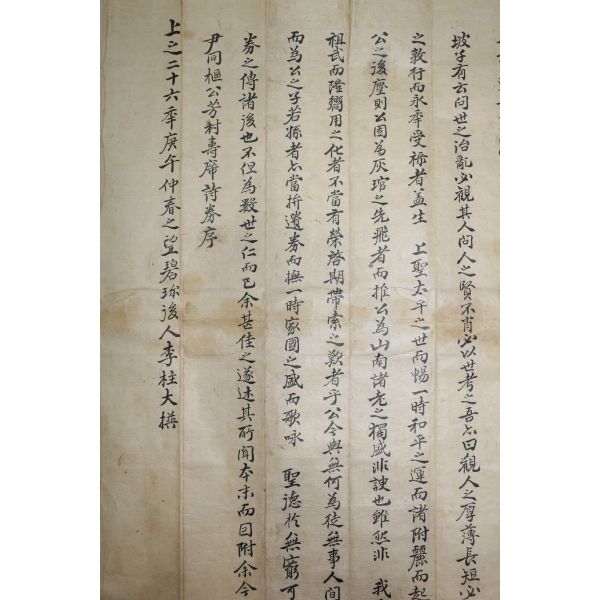 坡子有云問世之治亂必觀其人問人之賢不肖必以世考之吾亦曰觀人之厚薄長短必
之敦行而永年受祿者盖生 上聖太平之世而暢一時和平之運而諸附麗而起
公之後塵則公固為灰琯之先飛者而推公為山南諸老之獨盛非諛也雖然非 我
祖武而隆嚮用之化者不當有榮啓期帶索之歎者乎公今與無何為徒無事人間
而為公之子若孫者亦當拚遺券而撫一時家國之盛而歌咏 聖德於無窮可
券之傳諸後也不但為數世之仁而已余甚佳之遂述其所聞本末而因附余今
尹同樞公芳村壽帨詩券序
上之二十六年庚午仲春之望碧珎後人李柱大撰